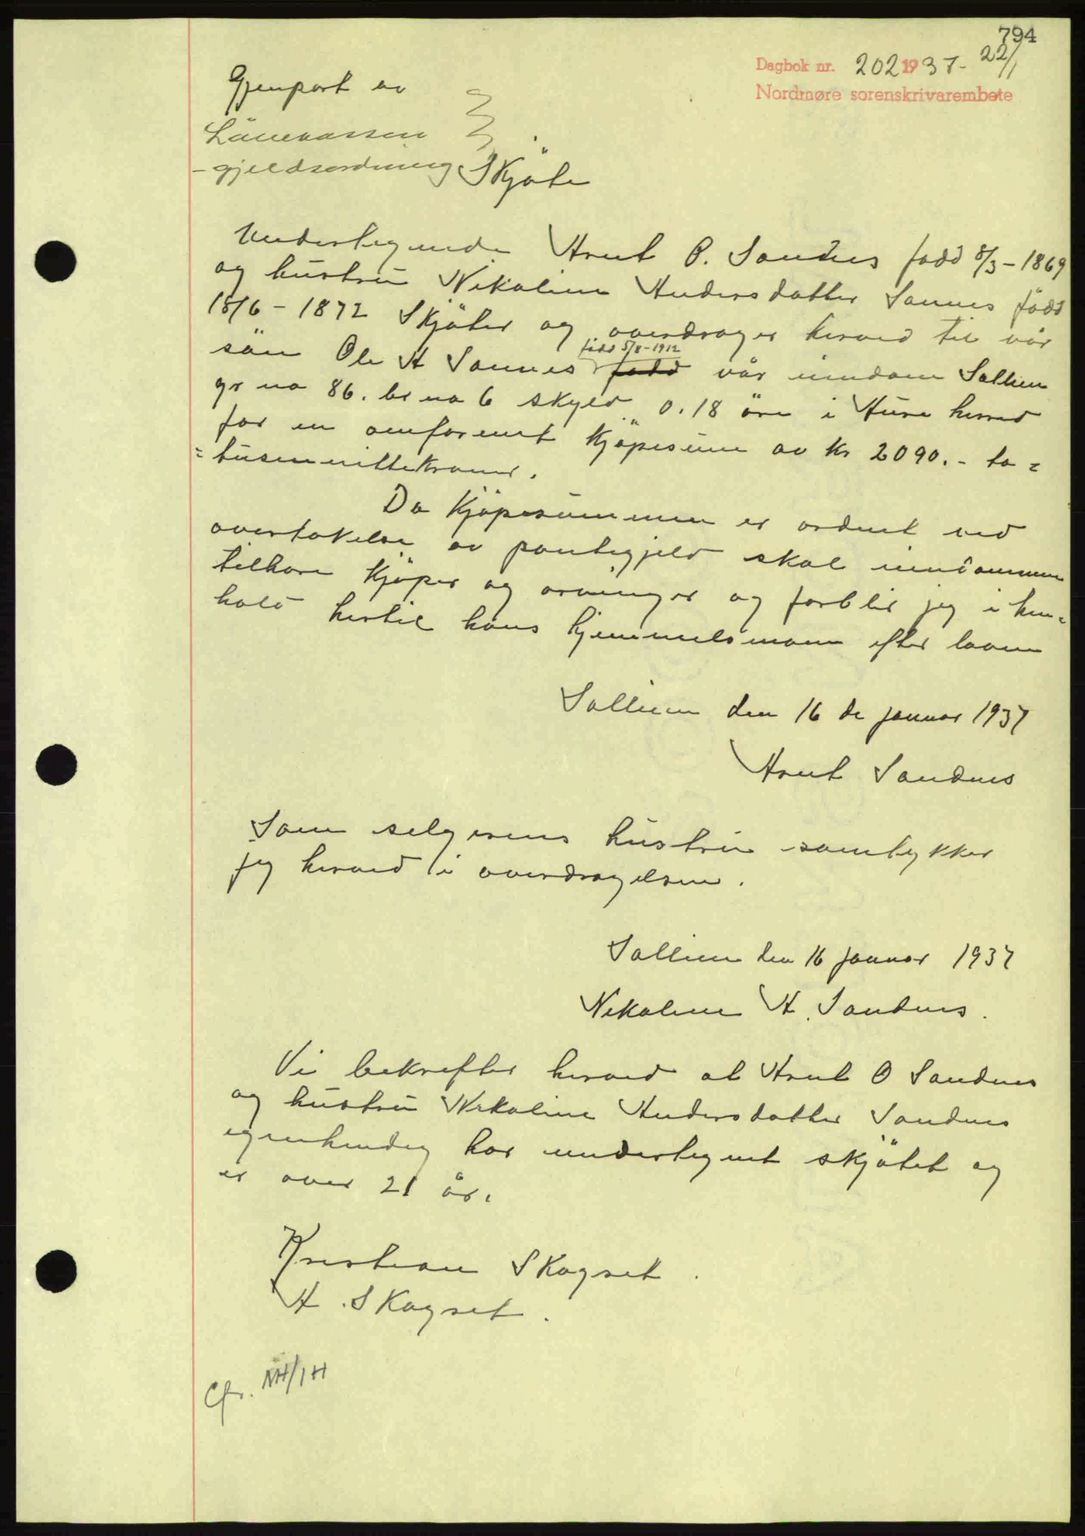 794
Dagbok nr. 202 1937 - 22/1
Nordmøre sorenskrivarembete
Gjenpart av
Lånekassen
- gjeldsordning Skjöte
Undertegnede Arnt O. Sandnes född 8/3 - 1869
og hustru Nikoline Andersdatter Sannes född
18/6 - 1872 Skjöter og overdrager herved til vår
född 5/8 - 1912
sön Ole A Sannes född vår eindom Sollien
gr no 86. br no 6 skyld 0.18 öre i Aure herred
for en omforent kjöpesum av kr 2090.- to =
= tusennittikroner.
Da kjöpesummen er ordnet ved
overtakelse av pantegjeld skal eindommen
tilhöre kjöper og arvinger og forblir jeg i hen=
hold hertil hans hjemmelsmann efter loven
Sollien den 16 de januar 1937
Arnt Sandnes
Som selgerens hustru samtykker
jeg herved i overdragelsen.
Sollien den 16 januar 1937
Nikoline A. Sandnes.
Vi bekrefter herved at Arnt O Sandnes
og hustru Nikoline Andersdatter Sandnes
egenhendig har undertegnet skjötet og
er over 21 år.
Kristian Skogset.
A. Skogset.
Cfr. NH/IH